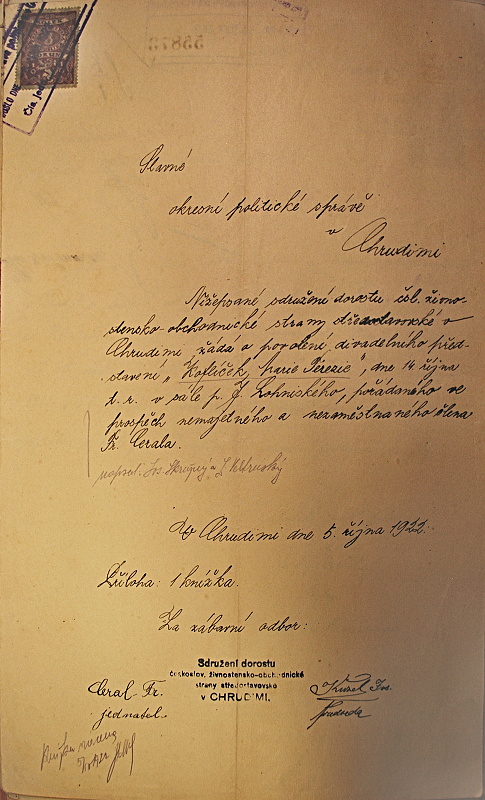 55870
DOŠLO DNE
Čís. jed
Slavné
okresní politické správě
v
Chrudimi
Nížepsané sdružení dorostu čsl. živno-
stensko-obchodnické strany středostavovské v
Chrudimi žáda o povolení divadelního před-
stavení „Kotlíček Marie Terezie", dne 14. října
t. r. v sále p. J. Lohniského, pořádaného ve
prospěch nemajetného a nezaměstnaného člena
Fr. Cerala.
napsal: Jos Skružný a J.
V Chrudimi dne 5. října 1922.
Příloha: 1 knížka.
Za zábavní odbor:
Sdružení dorostu
českoslov. živnostensko-obchodnické
strany středostavovské
v CHRUDIMI.
Ceral Fr.
jednatel.
Jos.
předseda